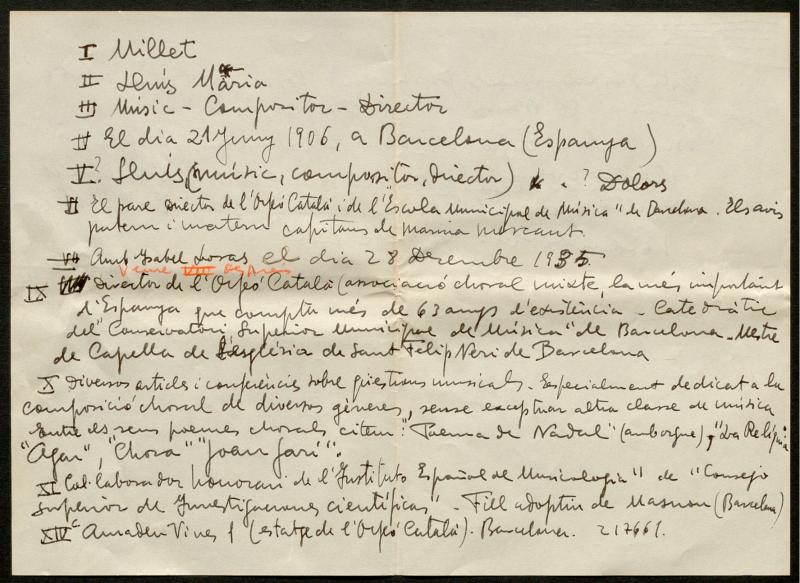 I Millet
II Lluís Maria
III Músic - Compositor - Director
IV El dia 21 Juny 1906, a Barcelona (Espanya)
V ? Lluís (músic, compositor, director) . ? Dolors
VI El pare Director de l'Orfeó Català i de l'"Escola Municipal de Música" de Barcelona. Els avis
patern i matern capitans de marina mercant.
VII Amb Isabel Loras el dia 28 Desembre 1935
Veure VIII després
IX Director de l'Orfeó Català (associació choral mixte, la més important
d'Espanya que compta més de 63 anys d'existència - Catedràtic
del "Conservatori Superior Municipal de Música" de Barcelona - Mestre
de Capella de l'Església de Sant Felip Neri de Barcelona
X Diversos articles i conferències sobre qüestions musicals. Especialment dedicat a la
composició choral de diversos gèneres, sense exceptuar altra classe de música
Entre els seus poemes chorals citem: "Poema de Nadal" (amb orgue), "La Relíquia"
"Agar", "Chora" "Joan Garí".
XI Col·laborador honorari de l'"Instituto Español de Musicología" de "Consejo
Superior de Investigaciones científicas" - Fill adoptiu de Masnou (Barcelona)
XIV c Amadeu Vives 1 (estatge de l'Orfeó Català). Barcelona. 217661.